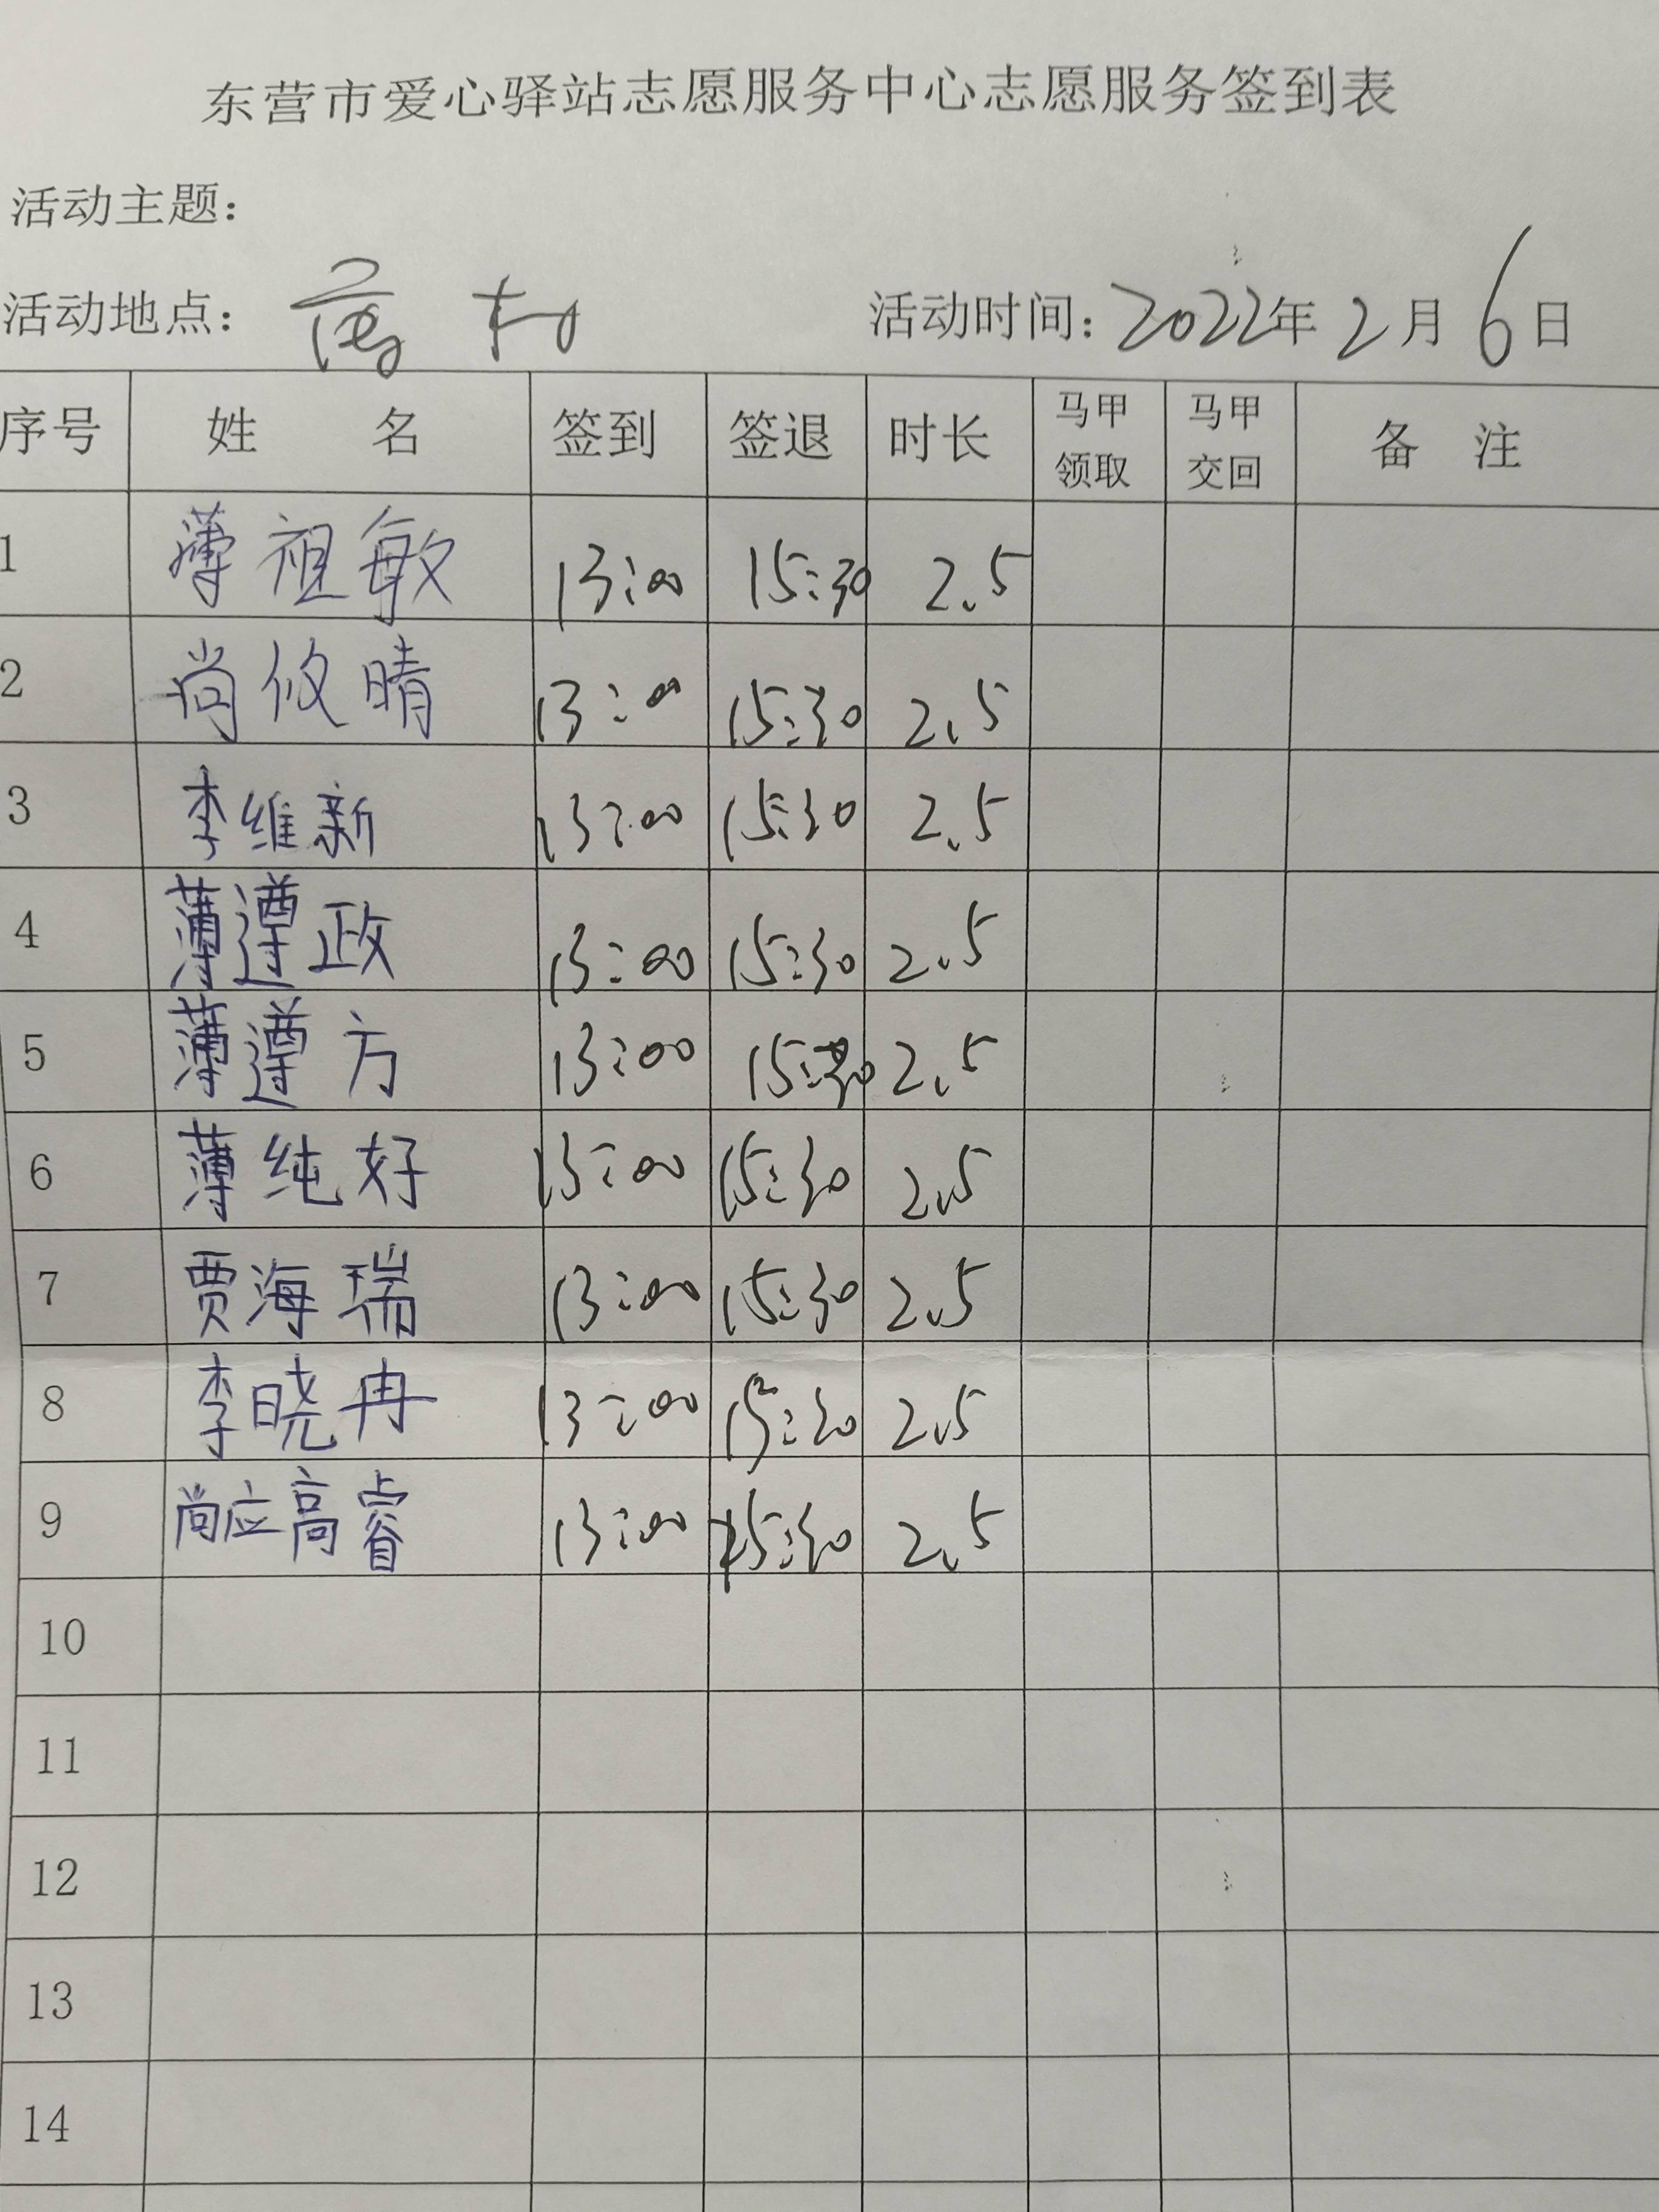 东营市爱心驿站志愿服务中心志愿服务签到表
活动主题：
活动地点： 活动时间：2022年2月6日
序号 姓名 签到 签退 时长 马甲领取 马甲交回 备注
1 薄祖敏 13:00 15:30 2.5
2 尚攸晴 13:00 15:30 2.5
3 李维新 13:00 15:30 2.5
4 薄遵政 13:00 15:30 2.5
5 薄遵方 13:00 15:30 2.5
6 薄纯好 13:00 15:30 2.5
7 贾海瑞 13:00 15:30 2.5
8 李晓冉 13:00 15:30 2.5
9 尚应高睿 13:00 15:30 2.5
10
11
12
13
14